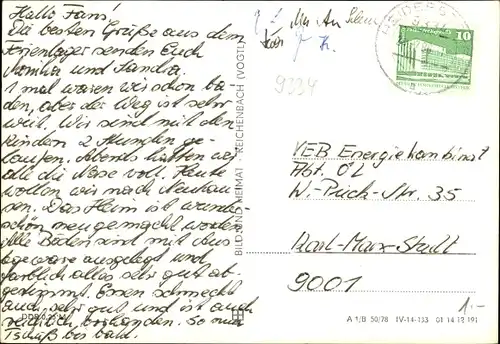 Hallo Fans!
Die besten Grüße aus dem
Ferienlager senden Euch
Monika und Sandra.
1 mal waren wir schon ba-
den, aber der Weg ist sehr
weit. Wir sind mit den
Kindern 2 Stunden ge-
laufen. Abends hatten wir
alle die Nase voll. Heute
wollen wir nach Neuhau-
sen. Das Heim ist wunder-
schön neu gemacht worden,
alle Böden sind mit Aus
legeware ausgelegt und
farblich alles sehr gut ab-
gestimmt. Essen schmeckt
auch sehr gut und ist auch
reichlich vorhanden. So nun
Tschüß bis bald.
DDR 0,25 M
BILD UND HEIMAT · REICHENBACH (VOGTL)
9334
10
VEB Energiekombinat
Abt. ÖL
W.-Pieck-Str. 35
Karl-Marx-Stadt
9001
1,-
A 1/B 50/78 IV-14-133 01 14 12 191